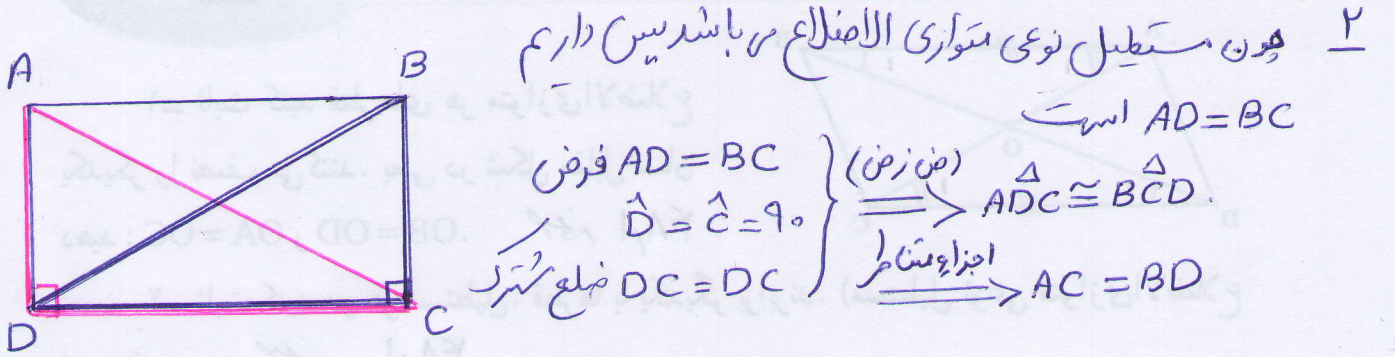 ۲ چون مستطیل نوعی متوازی الاضلاع می باشد پس داریم
AD=BC است
A B
D C
فرض AD=BC
D̂=Ĉ=۹۰
ضلع مشترک DC=DC
(ض ز ض) ⟹ AD̂C≅BĈD.
اجزاء متناظر ⟹ AC=BD